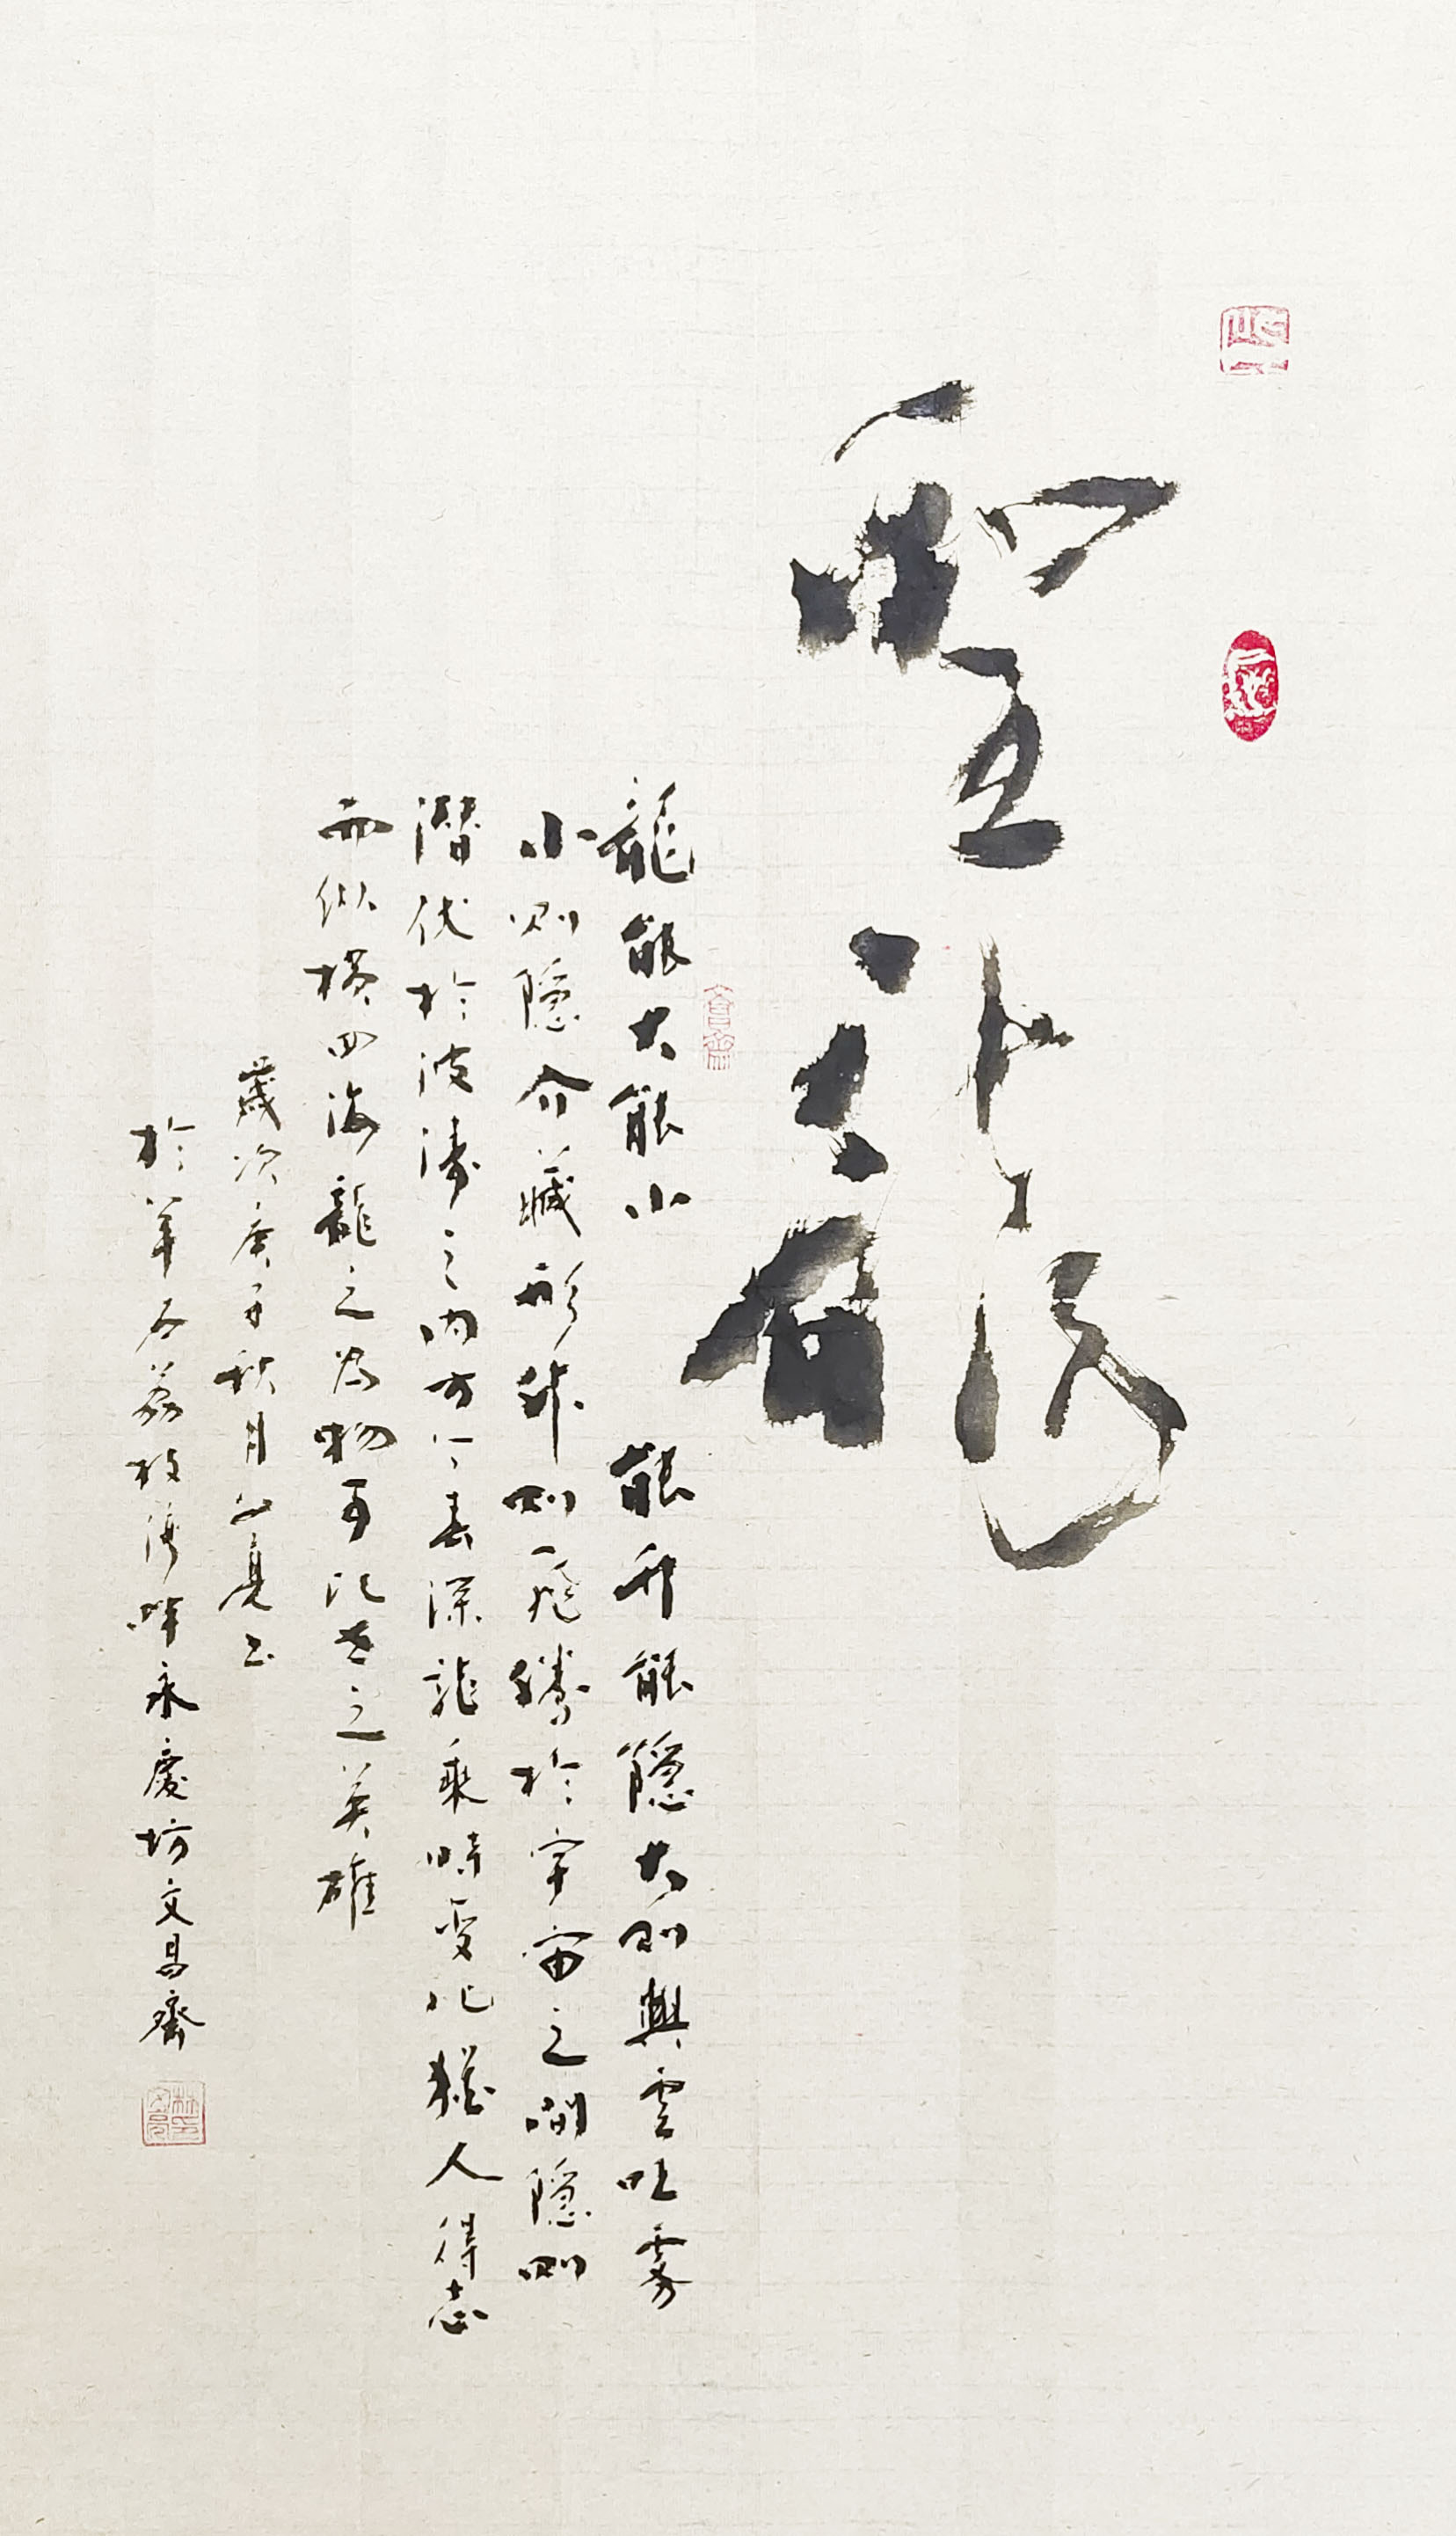 聖龍
龍能大能小能升能隱大則興雲吐霧
小則隱介藏形升則飛騰於宇宙之間隱則
潛伏於波濤之內方今春深龍乘時變化猶人得志
而縱橫四海龍之為物可比世之英雄
歲次庚子秋月文亮書
於羊石荔枝灣畔永慶坊文昌齋